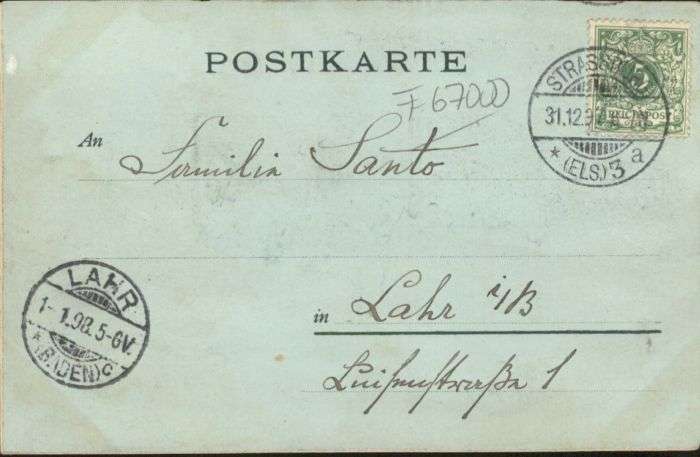 POSTKARTE
F 67000
STRASSBURG
31.12.97
* (ELS.) 3 a
REICHSPOST
An Familie Santo
in Lahr i/B
Luisenstraße 1
LAHR
1-1.98.5-6V.
* (BADEN) c